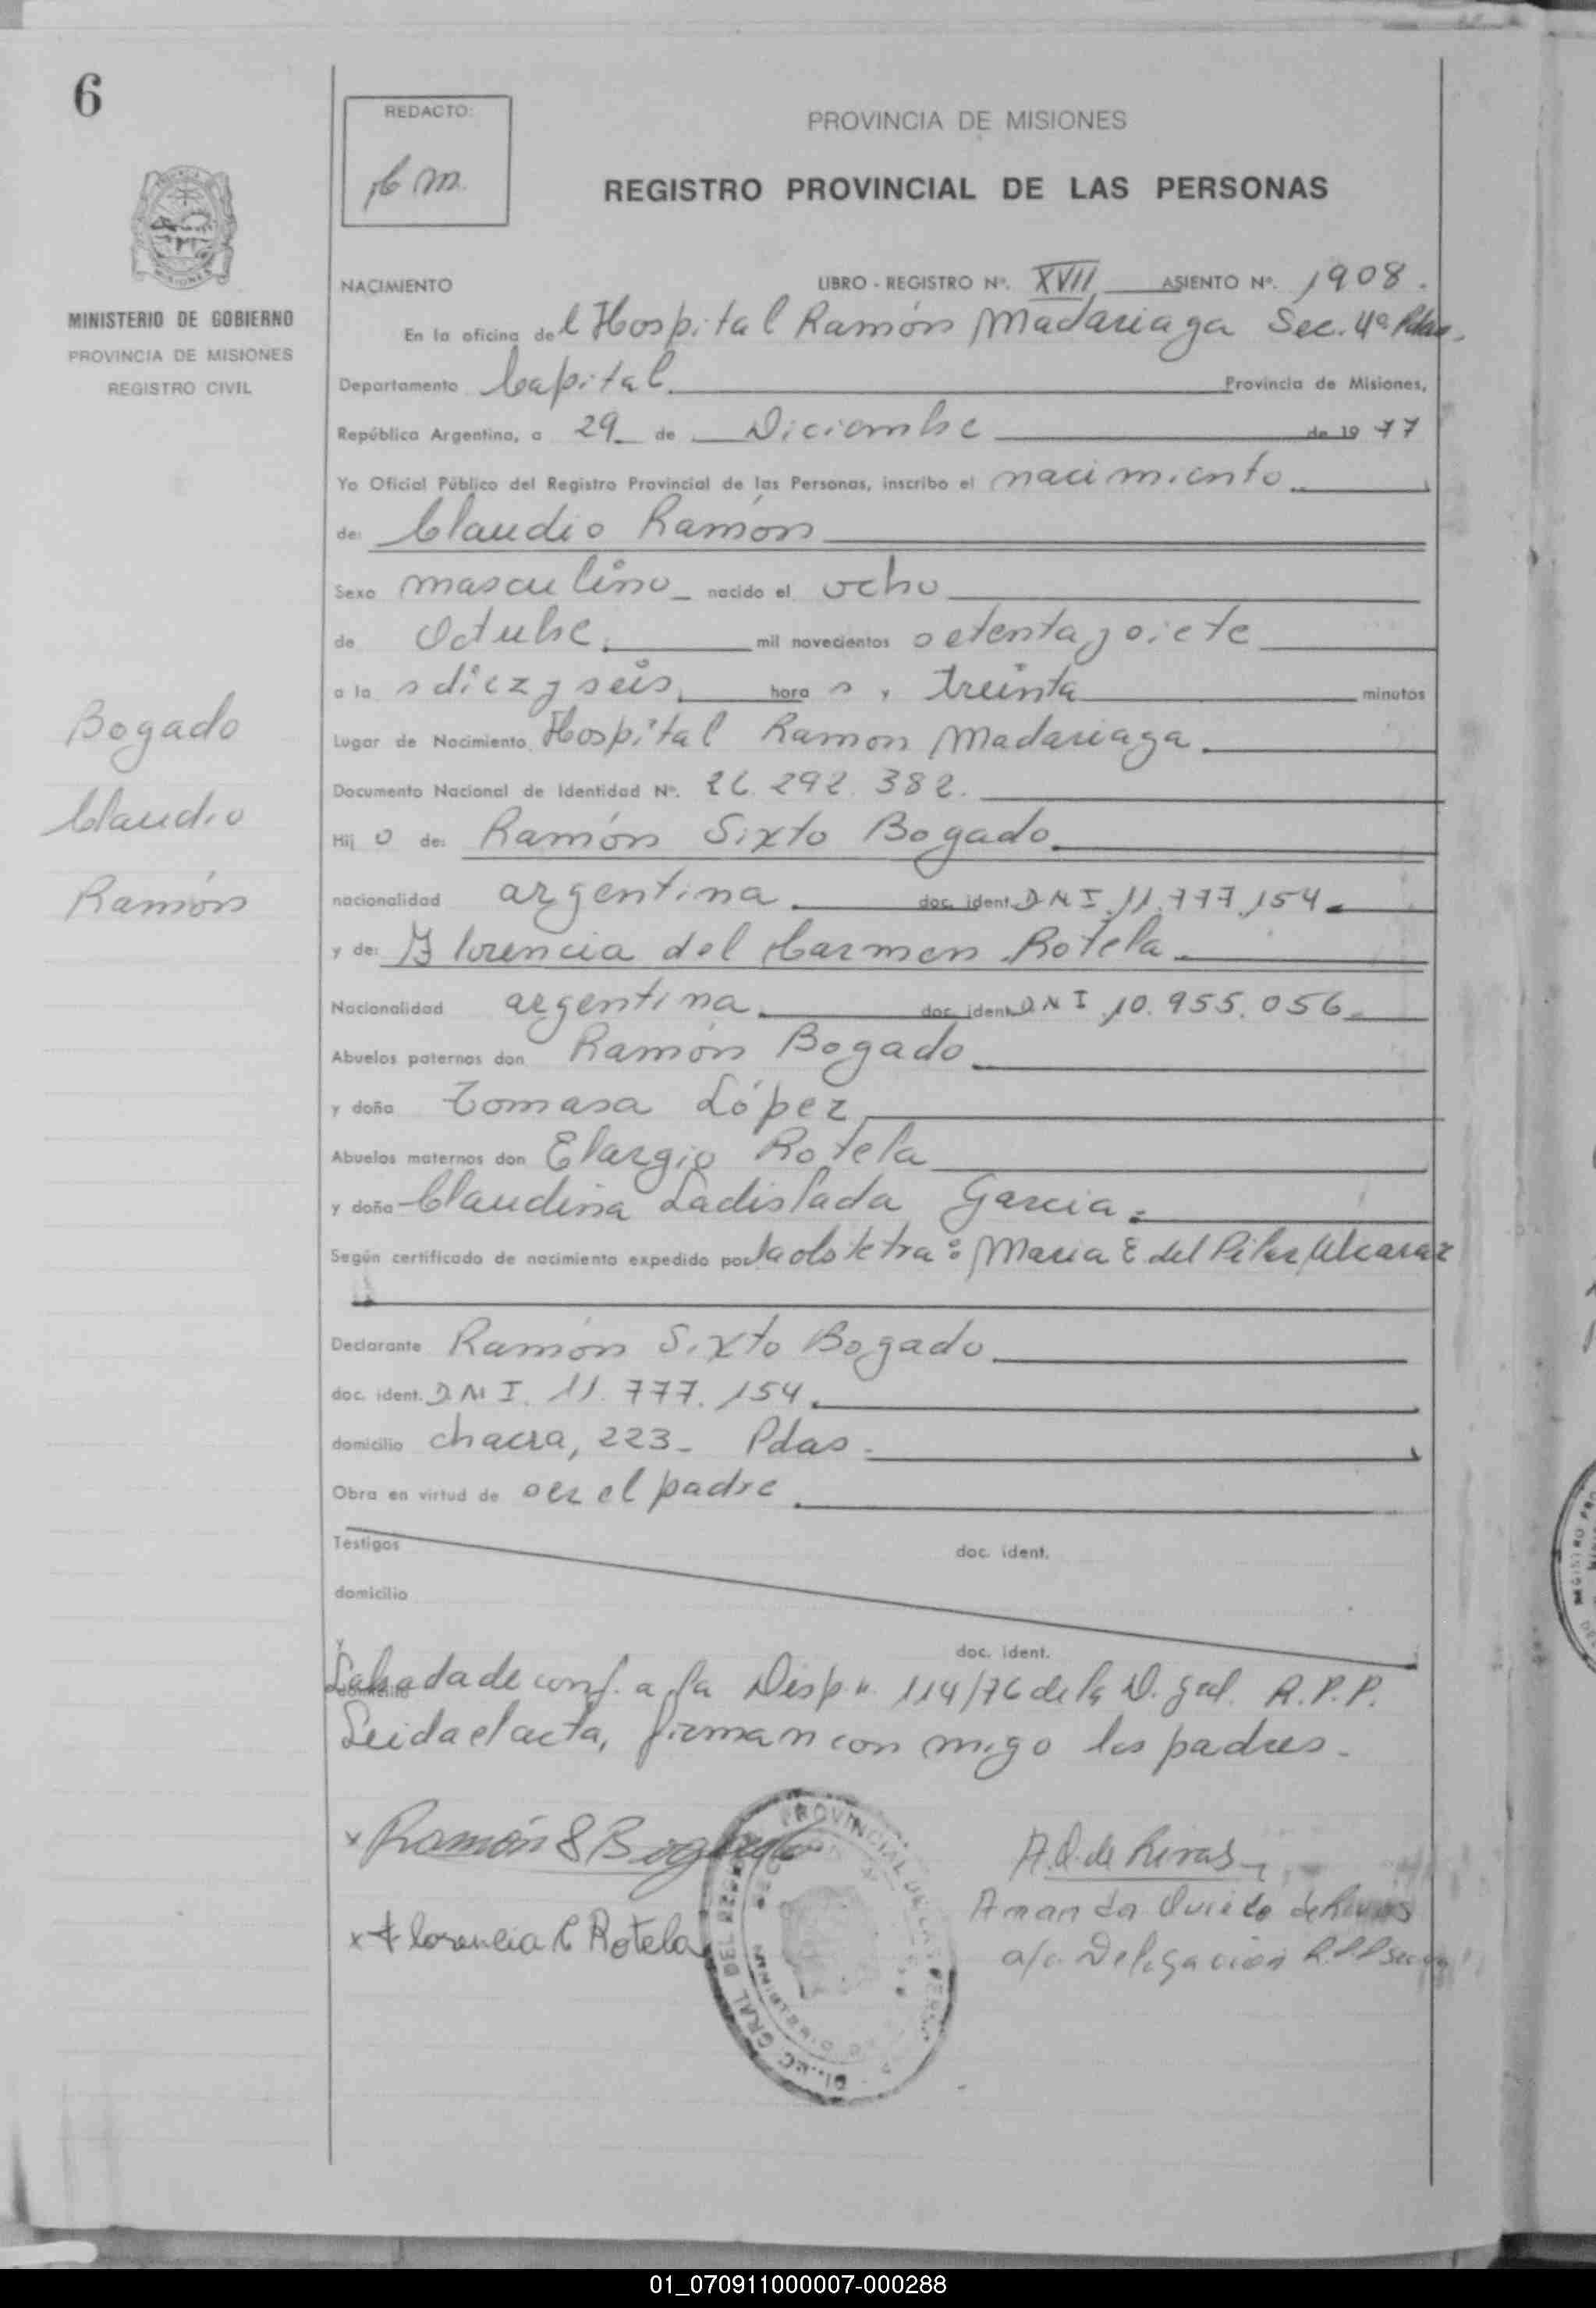 6
REDACTO:
PROVINCIA DE MISIONES
REGISTRO PROVINCIAL DE LAS PERSONAS
MINISTERIO DE GOBIERNO
PROVINCIA DE MISIONES
REGISTRO CIVIL
NACIMIENTO LIBRO - REGISTRO Nº. XVII ASIENTO Nº. 1908.
En la oficina del Hospital Ramón Madariaga Sec. 4ª Pdas.
Departamento Capital Provincia de Misiones,
República Argentina, a 29 de Diciembre de 1977
Yo Oficial Público del Registro Provincial de las Personas, inscribo el nacimiento
de: Claudio Ramón
Sexo masculino nacido el ocho
de Octubre mil novecientos setenta y siete
a la s diez y seis hora s y treinta minutos
Bogado
Claudio
Ramón
Lugar de Nacimiento Hospital Ramon Madariaga.
Documento Nacional de Identidad Nº. 26.292.382.
Hij o de: Ramón Sixto Bogado
nacionalidad argentina doc. ident. DNI. 11.777.154
y de: Florencia del Carmen Rotela
Nacionalidad argentina doc. ident. DNI 10.955.056
Abuelos paternos don Ramón Bogado
y doña Tomasa López
Abuelos maternos don Rotela
y doña Claudina Ladislada Garcia
Según certificado de nacimiento expedido por la obstetra: Maria E. del Pilar Alcaraz
Declarante Ramón Sixto Bogado
doc. ident. DNI. 11.777.154
domicilio chacra, 223 - Pdas.
Obra en virtud de ser el padre
Testigos doc. ident.
domicilio
y doc. ident.
domicilio
Labrada de conf. a la Disp. n. 114/76 de la D. gral. R.P.P.
Leida el acta, firman con migo los padres.
x Ramón S Bogado
A.O. de Rivas
Amanda Oviedo de Rivas
x Florencia C Rotela
a/c. Delegacion R.P.P
01_070911000007-000288